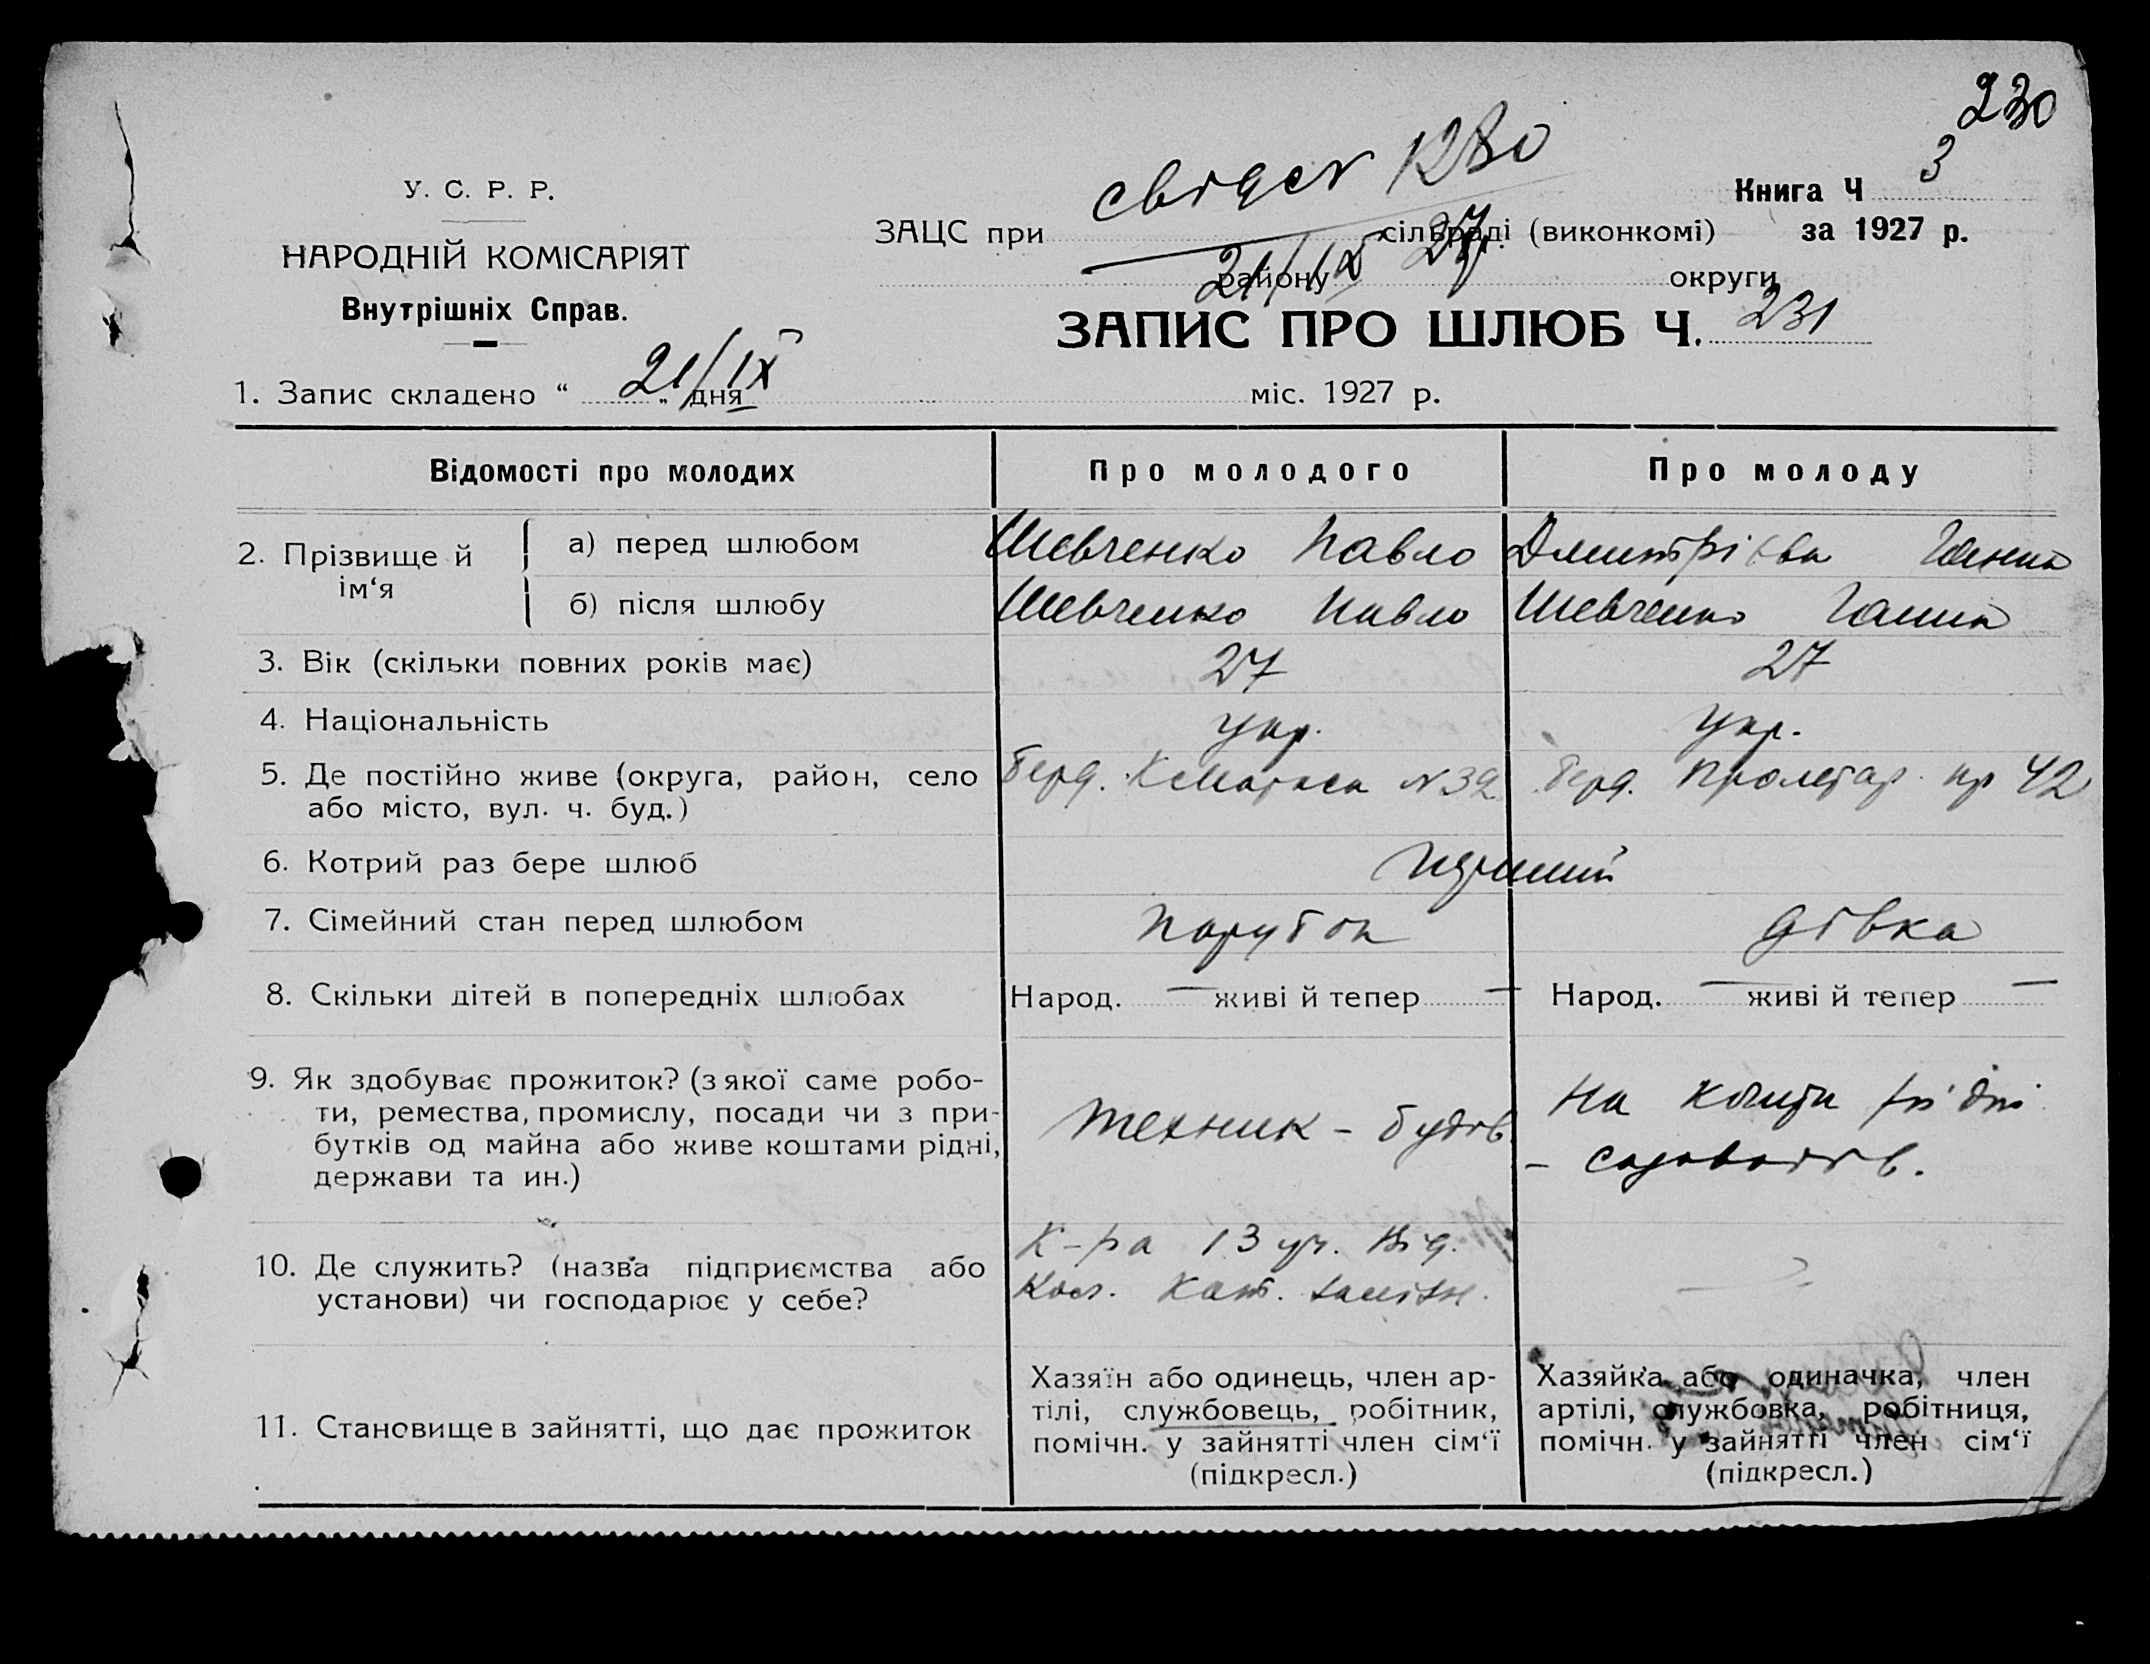 230
У. С. Р. Р.
НАРОДНІЙ КОМІСАРІЯТ
Внутрішніх Справ.
свідст 1280
21/IX 27
Книга Ч 3
ЗАЦС при сільраді (виконкомі) за 1927 р.
району округи
ЗАПИС ПРО ШЛЮБ Ч. 231
1. Запис складено “ 21/IX „ дня міс. 1927 р.
Відомості про молодих Про молодого Про молоду
2. Прізвище й ім‘я
а) перед шлюбом Шевченко Павло Дмитрієва Ганна
б) після шлюбу Шевченко Павло Шевченко Ганна
3. Вік (скільки повних років має) 27 27
4. Національність укр. укр.
5. Де постійно живе (округа, район, село
або місто, вул. ч. буд.)
Берд. К Маркса N 39
Берд. Пролетар. пр 42
6. Котрий раз бере шлюб перший
7. Сімейний стан перед шлюбом парубок дівка
8. Скільки дітей в попередніх шлюбах Народ. — живі й тепер — Народ. — живі й тепер —
9. Як здобуває прожиток? (з якої саме робо-
ти, ремества, промислу, посади чи з при-
бутків од майна або живе коштами рідні,
держави та ин.)
Технік - будів.
На кошти рідні
10. Де служить? (назва підприємства або
установи) чи господарює у себе?
К-ра 13 уч. від.
Кат. залізн.
—
11. Становище в зайнятті, що дає прожиток
Хазяїн або одинець, член ар-
тілі, службовець, робітник,
помічн. у зайнятті член сім‘ї
(підкресл.)
Хазяйка або одиначка, член
артілі, службовка, робітниця,
помічн. у зайнятті член сім‘ї
(підкресл.)